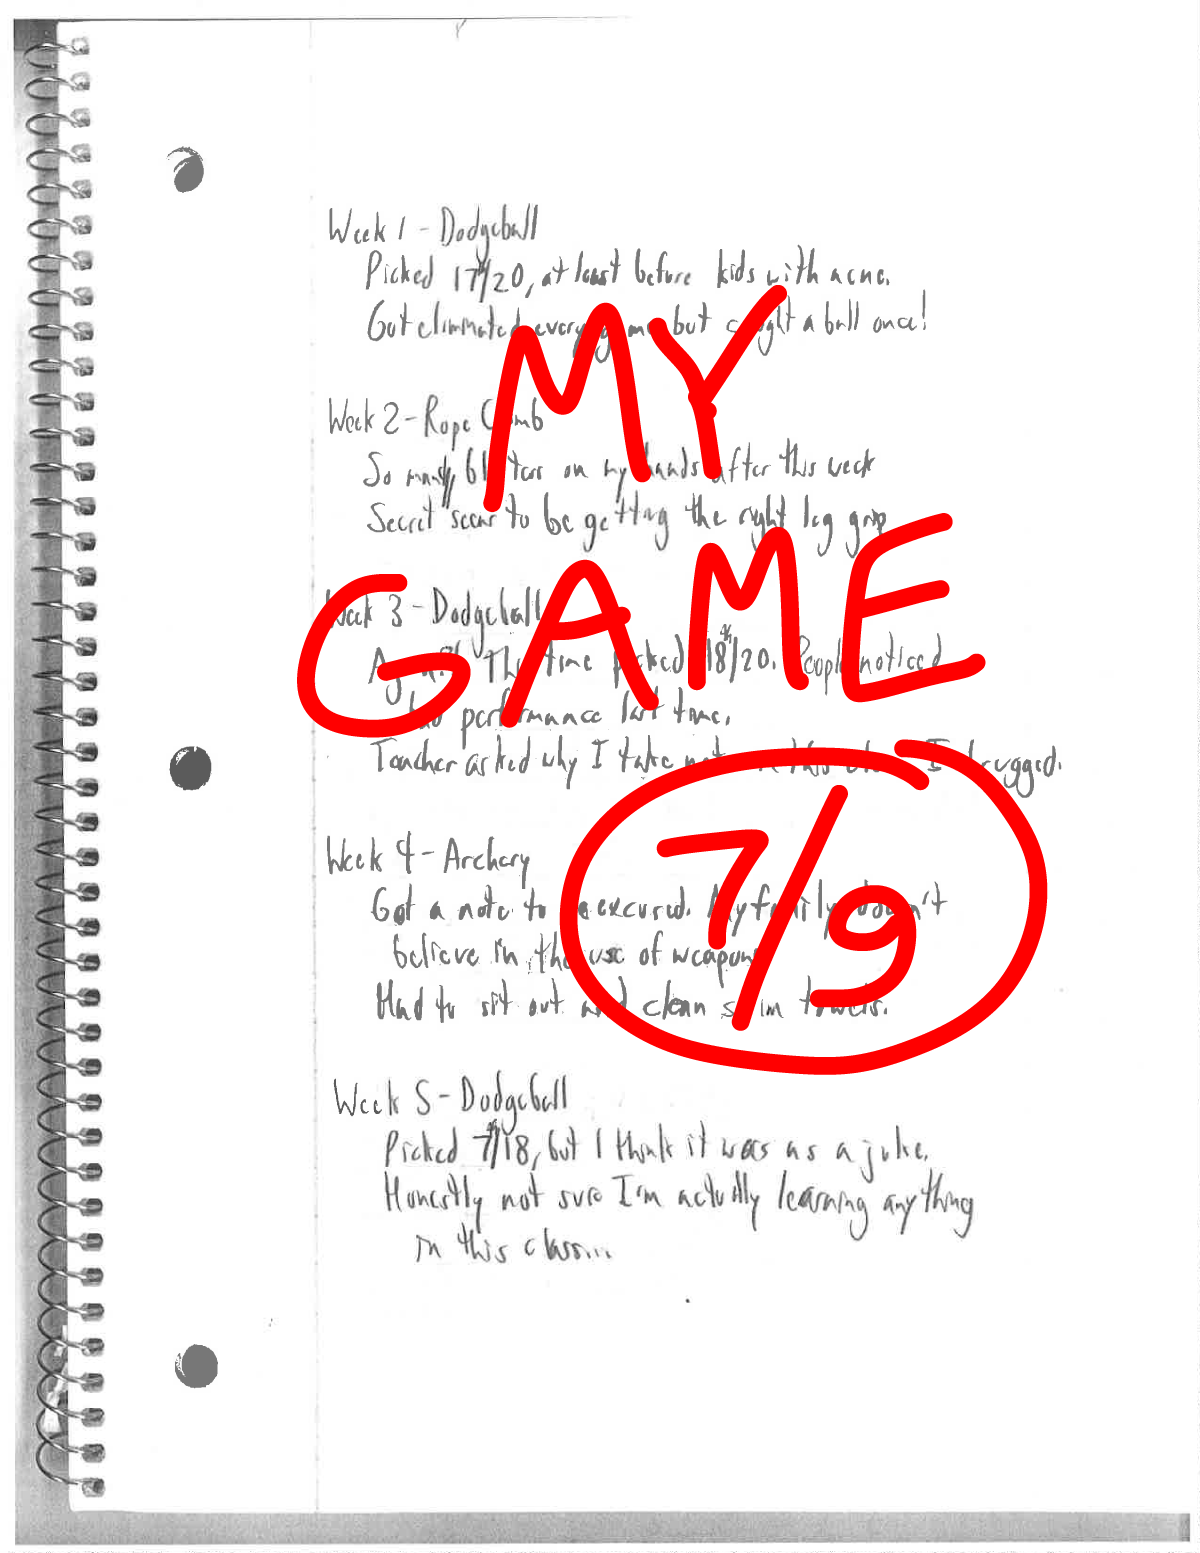 Week 1 - Dodgeball
Picked 17th/20, at least before kids with acne.
Got eliminated every game but caught a ball once!
MY
Week 2 - Rope Climb
So many blisters on my hands after this week
Secret seems to be getting the right leg grip
GAME
Week 3 - Dodgeball
Again! This time picked 18th/20. People noticed
bad performance last time.
Teacher asked why I take notes in this class. I shrugged.
7/9
Week 4 - Archery
Got a note to be excused. My family doesn't
believe in the use of weapons
Had to sit out and clean swim towels.
Week 5 - Dodgeball
Picked 7th/18, but I think it was as a joke.
Honestly not sure I'm actually learning anything
in this class...